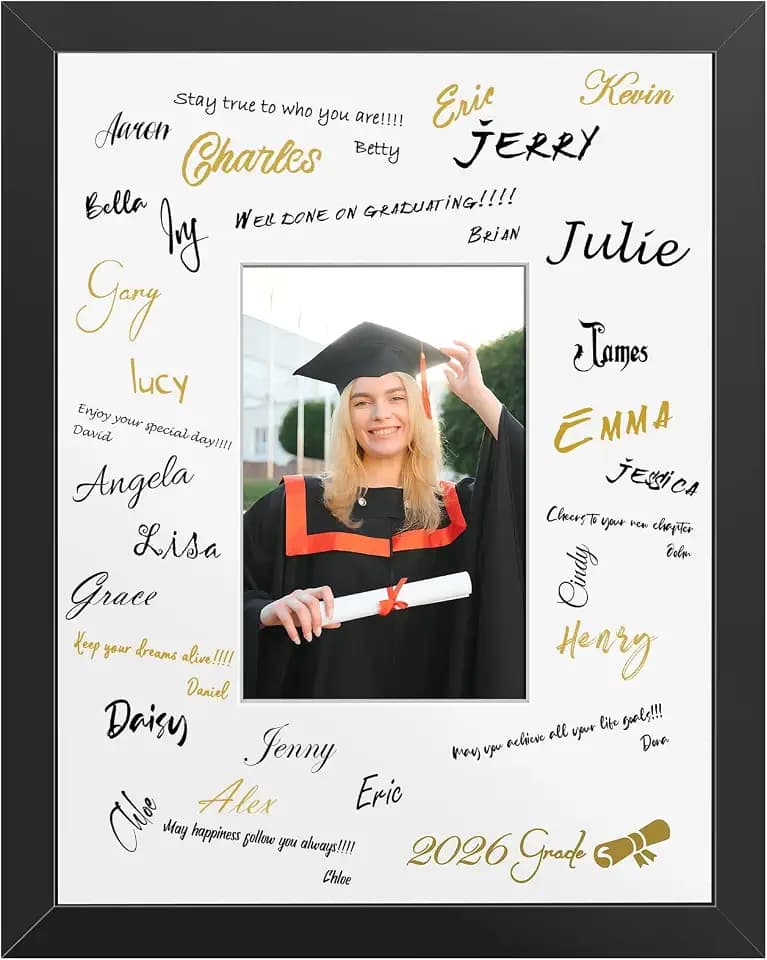 Kevin
Eric
Stay true to who you are!!!!
Aaron
Charles
Betty
JERRY
Bella
Ivy
WELL DONE ON GRADUATING!!!!
BRIAN
Julie
Gary
James
lucy
Enjoy your special day!!!!
David
EMMA
Angela
JESSICA
Cheers to your new chapter
John
Lisa
Cindy
Grace
Henry
Keep your dreams alive!!!!
Daniel
Daisy
Jenny
May you achieve all your life goals!!!
Dora
Alex
Eric
Chloe
May happiness follow you always!!!!
Chloe
2026 Grade